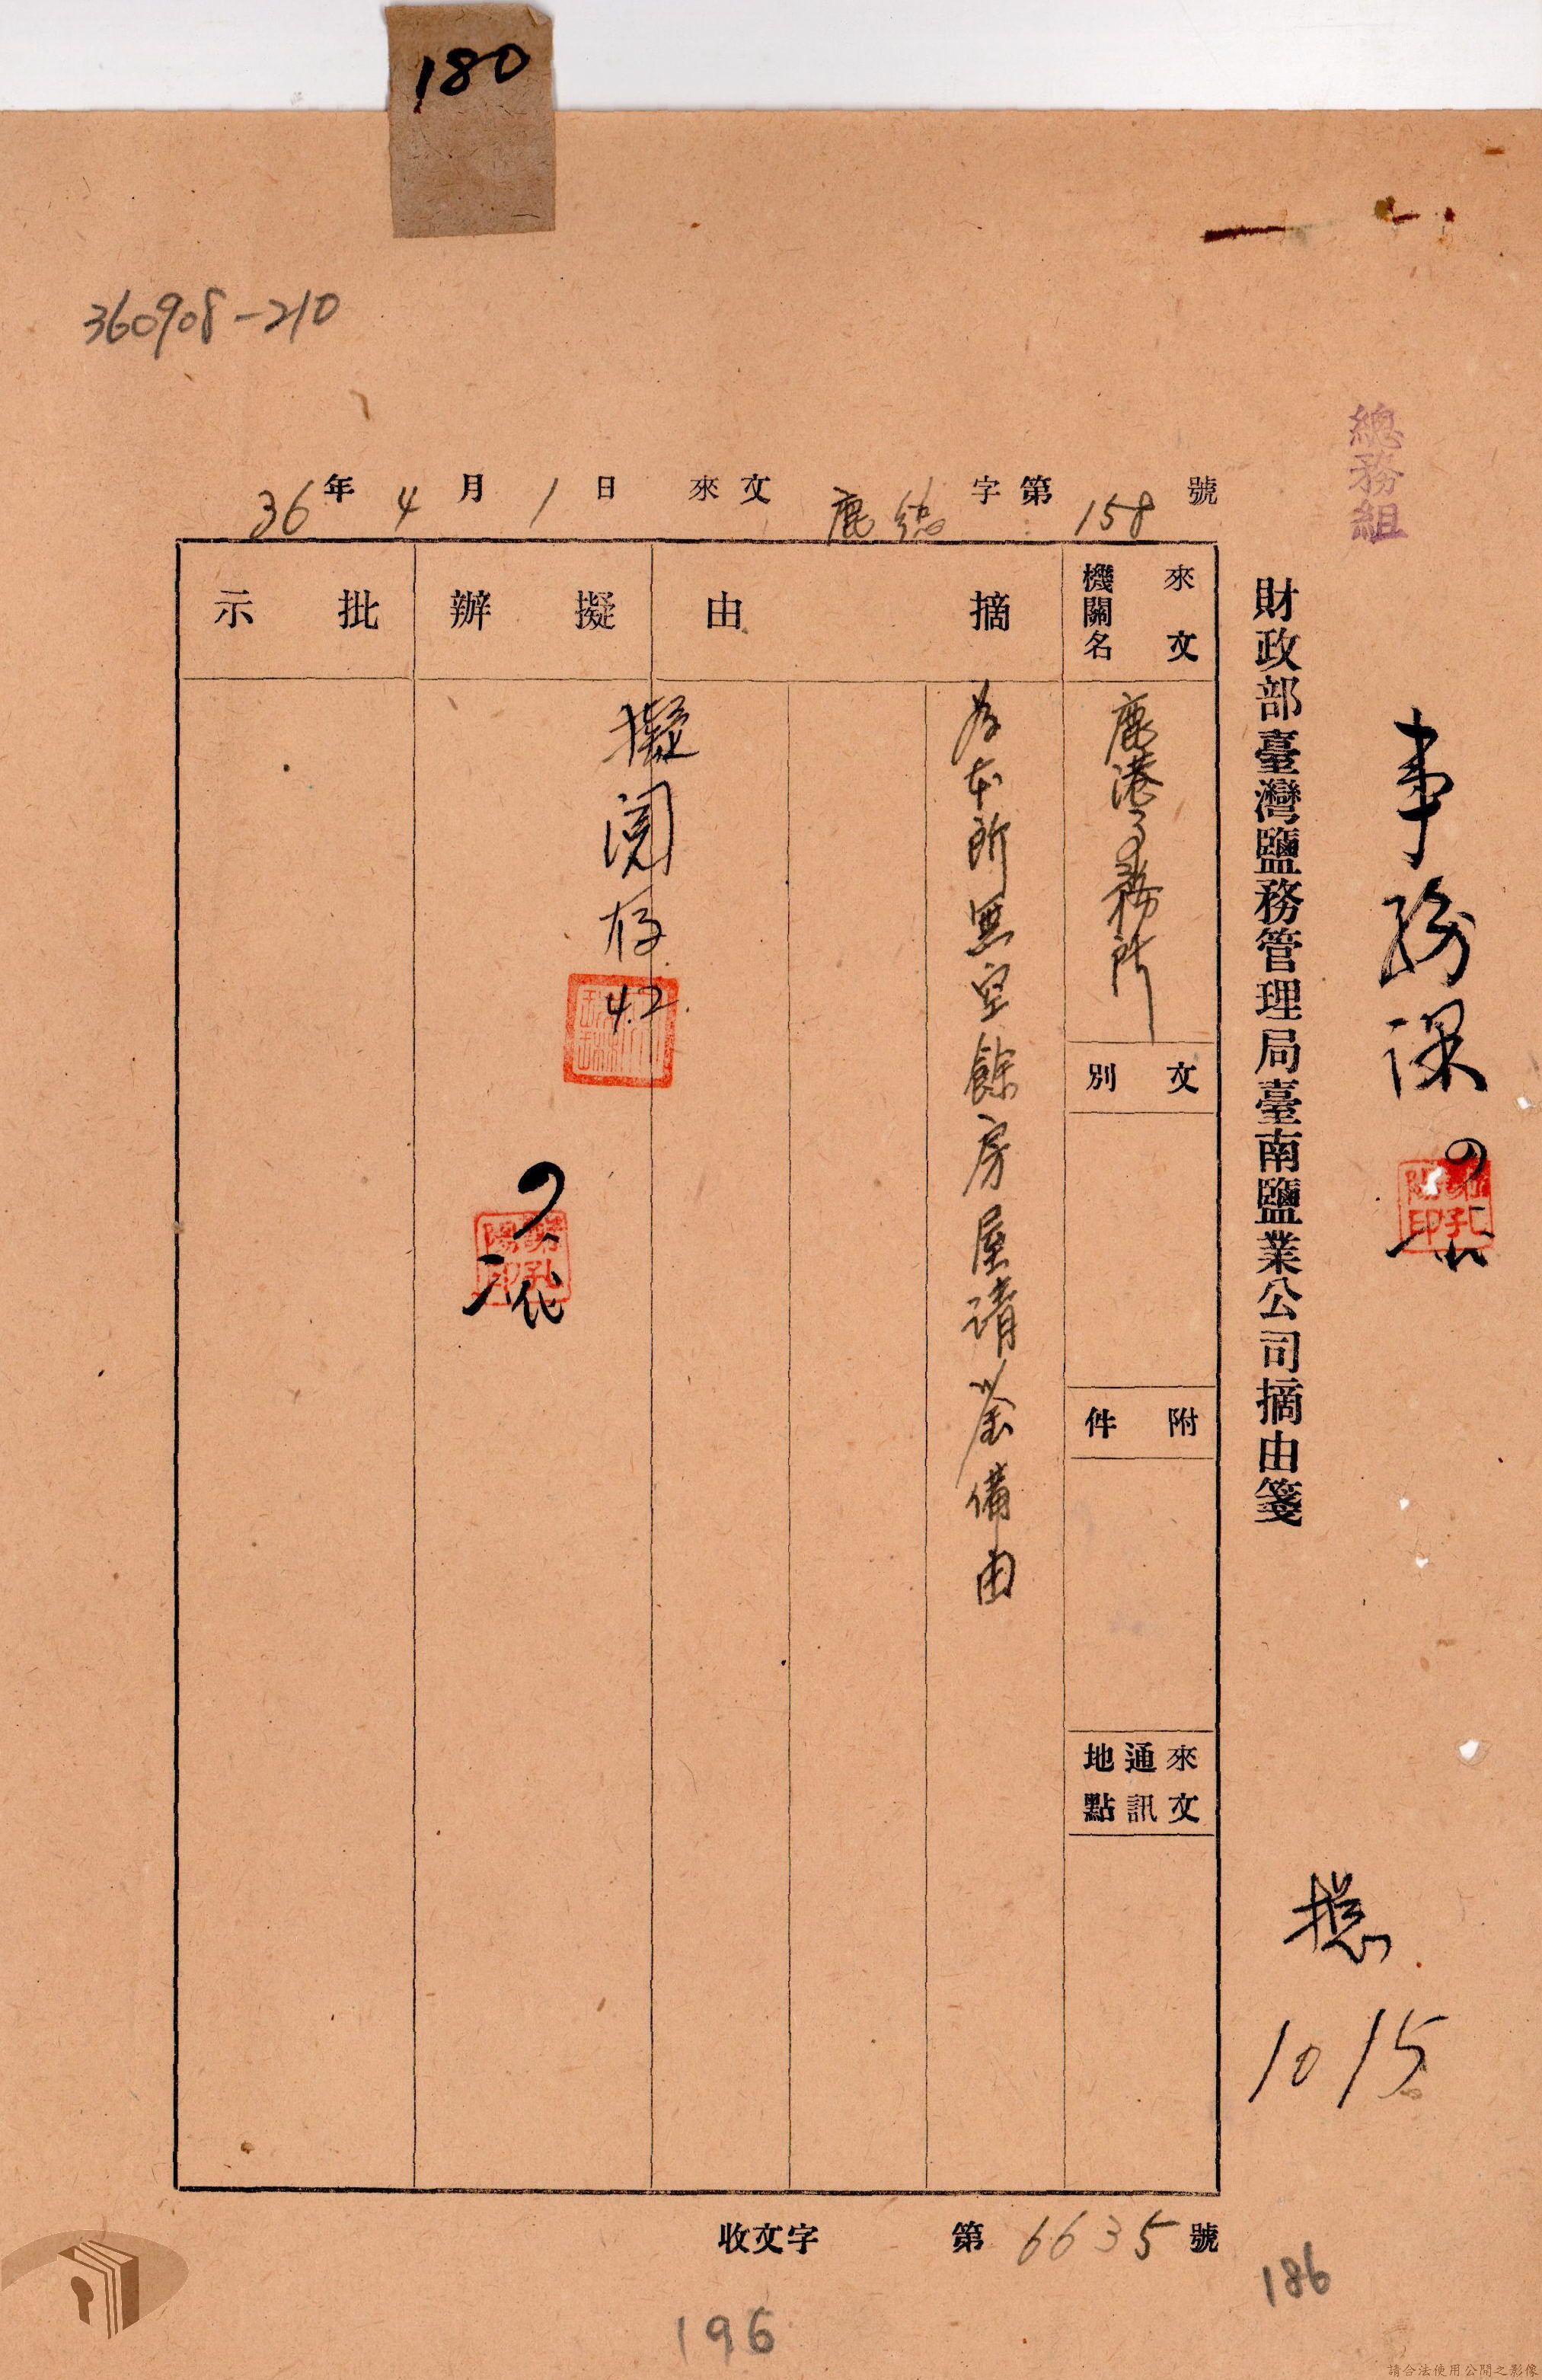 180
360908-210
總務組
事務課
財政部臺灣鹽務管理局臺南鹽業公司摘由箋
36年4月1日來文鹿總字第158號
來文機關名
鹿港事務所
文別
附件
來文通訊地點
摘由
為本所無空餘房屋請鉴備由
擬辦
擬閱存
4.2.
批示
總
1015
收文字第6635號
186
196
請合法使用公開之影像